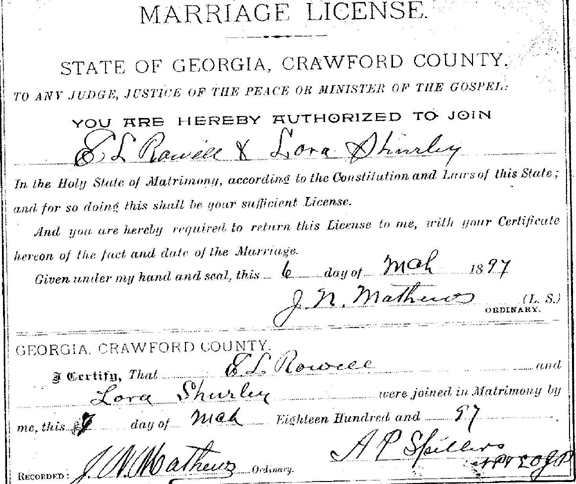 MARRIAGE LICENSE.
STATE OF GEORGIA, CRAWFORD COUNTY.
TO ANY JUDGE, JUSTICE OF THE PEACE OR MINISTER OF THE GOSPEL:
YOU ARE HEREBY AUTHORIZED TO JOIN
E L Rowell & Lora Shurley
In the Holy State of Matrimony, according to the Constitution and Laws of this State;
and for so doing this shall be your sufficient License.
And you are hereby required to return this License to me, with your Certificate
hereon of the fact and date of the Marriage.
Given under my hand and seal, this 6 day of Mch 1897
J. N. Mathews (L. S.)
ORDINARY.
GEORGIA, CRAWFORD COUNTY.
I Certify, That E L Rowell and
Lora Shurley were joined in Matrimony by
me, this day of Mch Eighteen Hundred and 97
A P Spillers
RECORDED: J. N. Mathews Ordinary.